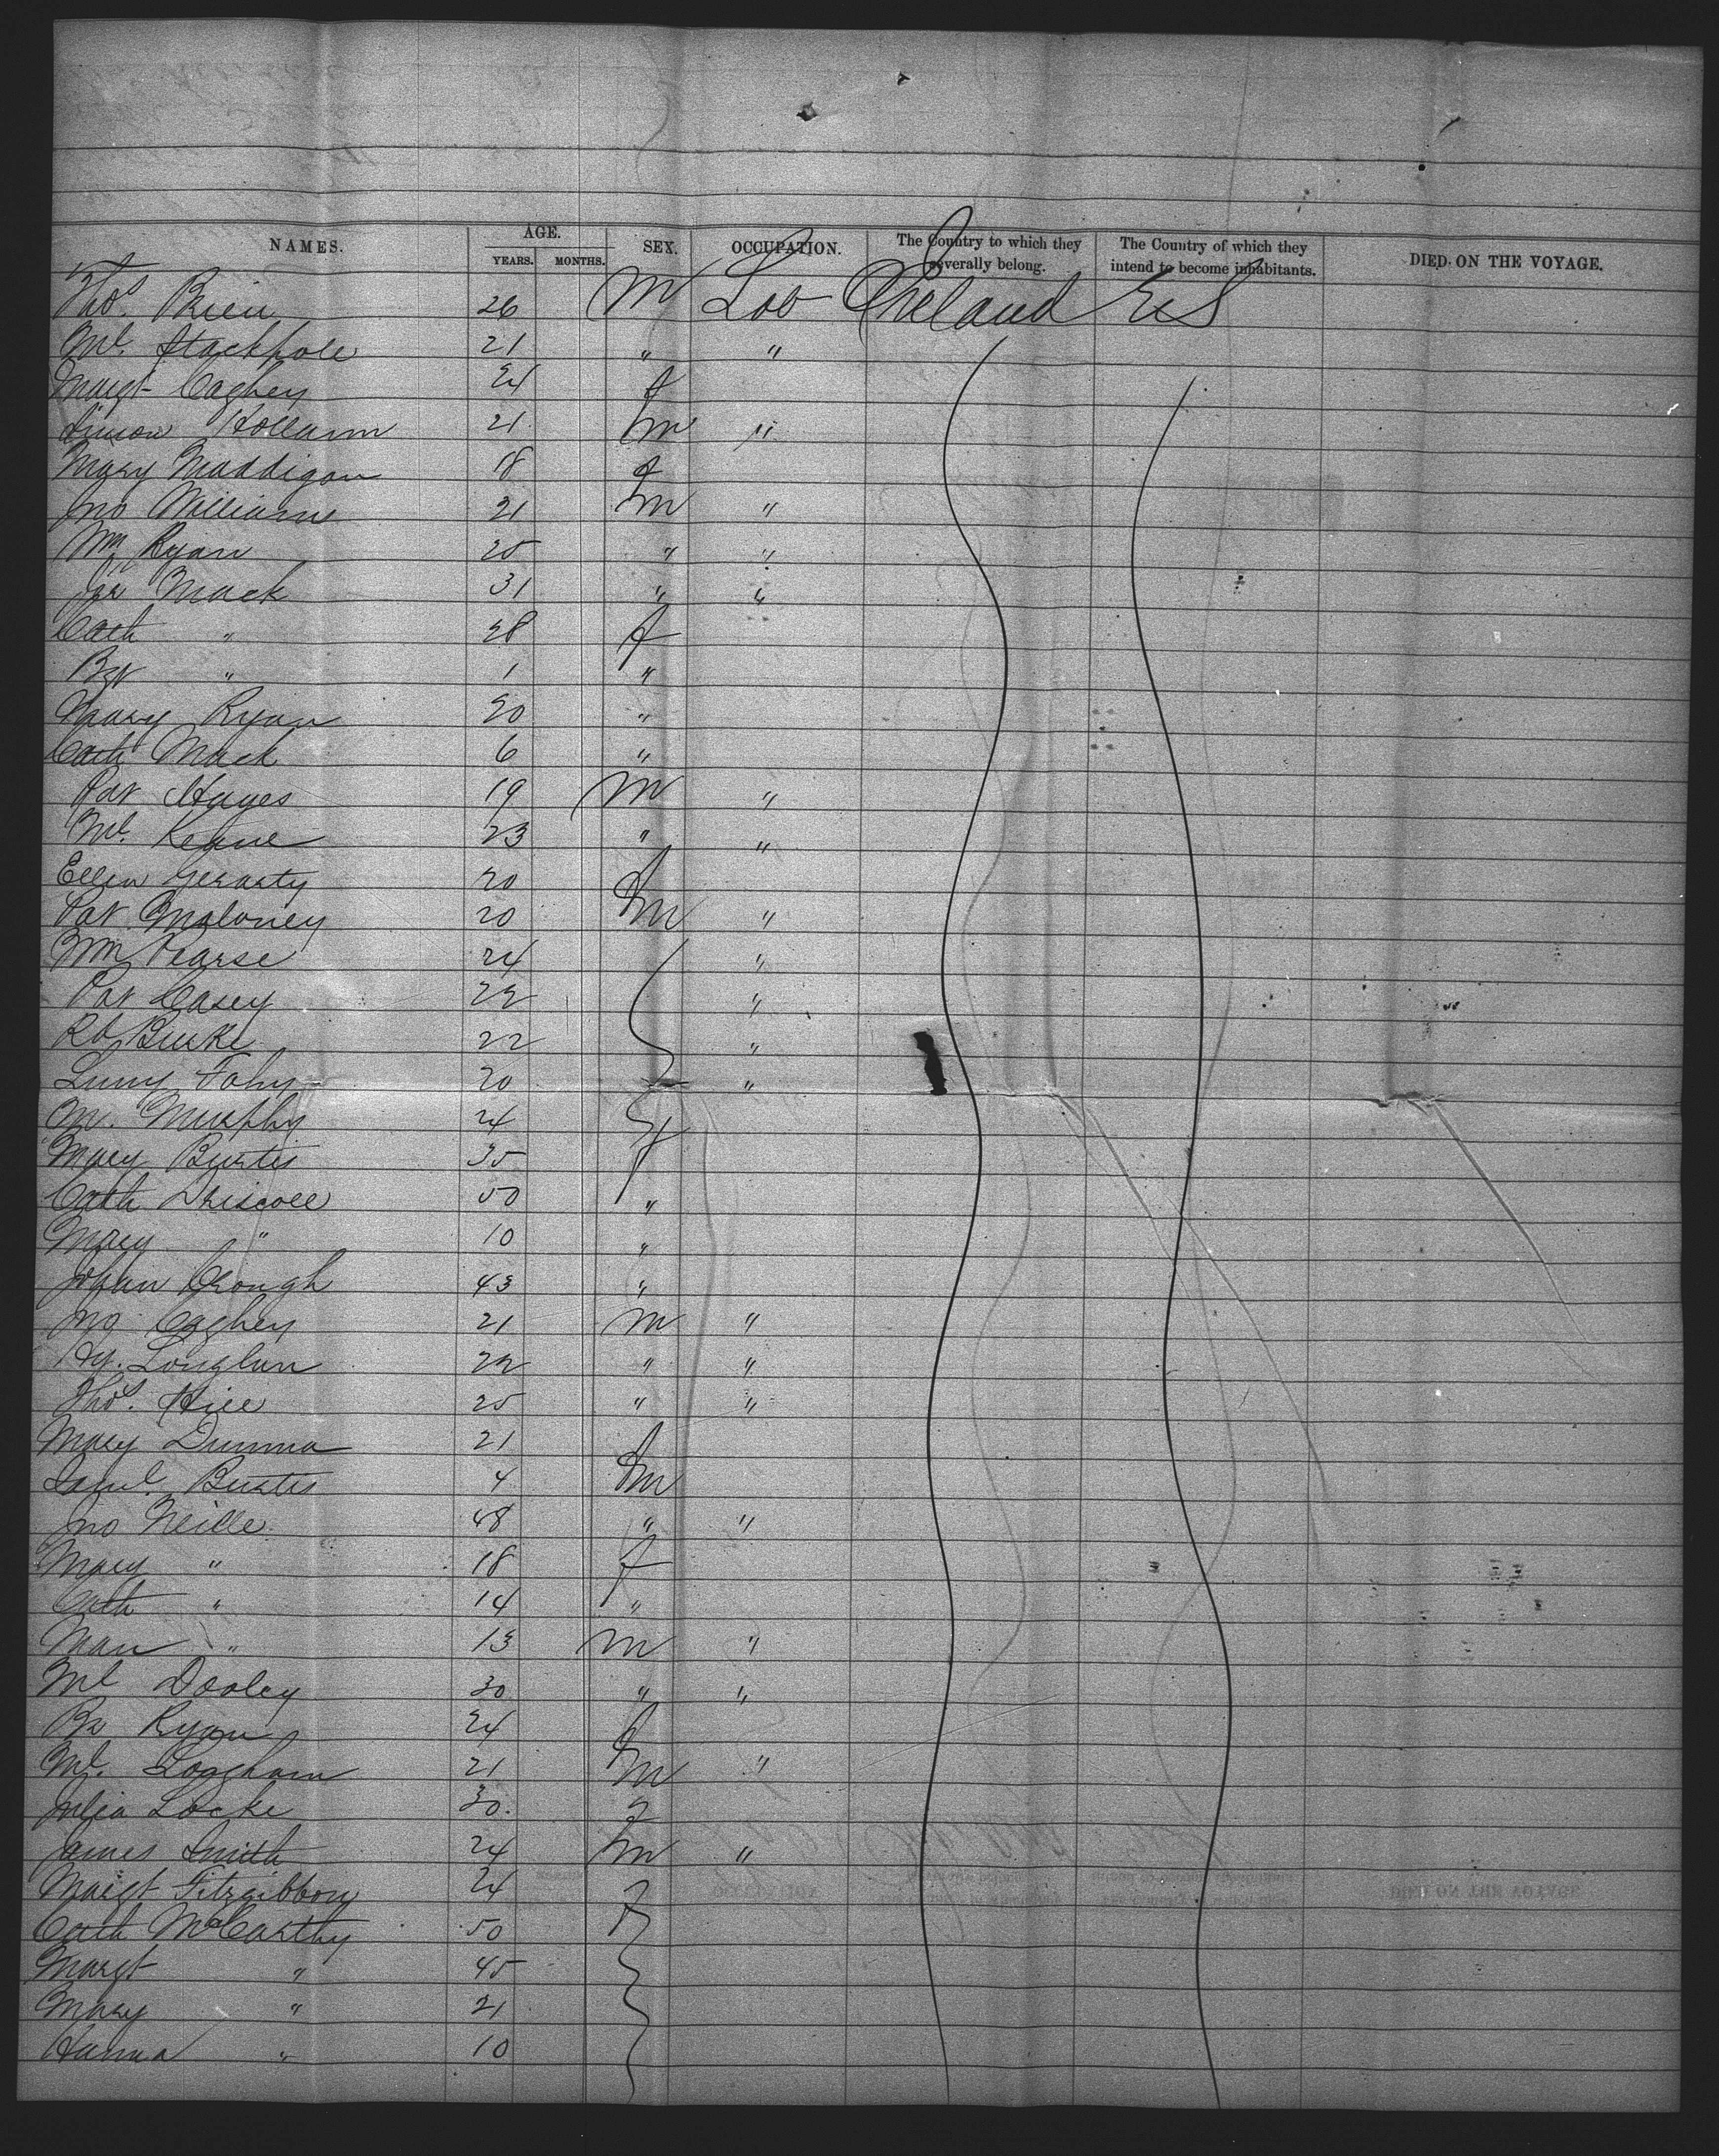 NAMES. AGE. YEARS. MONTHS. SEX. OCCUPATION. The Country to which they severally belong. The Country of which they intend to become inhabitants. DIED ON THE VOYAGE.
Thos. Brien 26 m Lab Ireland US
Ml. Stackpole 21 " "
Margt Caghey 24 f
Simon Hollann 21 m "
Mary Maddigan 18 f
Jno Williams 21 m "
Wm Ryan 25 " "
Jas Mack 31 " "
Cath " 28 f
Bgt " 1 "
Mary Ryan 20 "
Cath Mack 6 "
Pat Hayes 19 m "
Ml. Keane 23 " "
Ellen Gerarty 20 f
Pat Maloney 20 m "
Wm Pearse 24 "
Pat Casey 22 "
Rd Burke 22 "
Fahy 20 "
M. Murphy 24 f
Mary Burtis 35
Cath Driscoll 50 "
Mary " 10 "
Johan Crough 43 "
Jno Caghey 21 m "
Hy. Loughlan 22 " "
Thos. Hice 25 " "
Mary Dumma 21 f
Saml. Burtis 4 m
Jno Neille 48 " "
Mary " 18 f
Cath " 14 "
Man " 13 m "
Ml Dooley 30 " "
Br Ryan 24 f
Ml. Loogham 21 m "
Julia Locke 30. f
James Smith 24 m "
Margt Fitzgibbon 24 f
Cath McCarthy 50
Margt " 45
Mary " 21
Hanna " 10